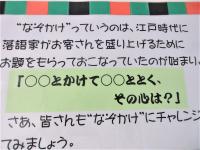 "なぞかけ"っていうのは、江戸時代に
落語家がお客さんを盛り上げるために
お題をもらっておこなっていたのが始まり。
「○○とかけて○○ととく、
その心は？」
さあ、皆さんも"なぞかけ"にチャレンジ
てみましょう。